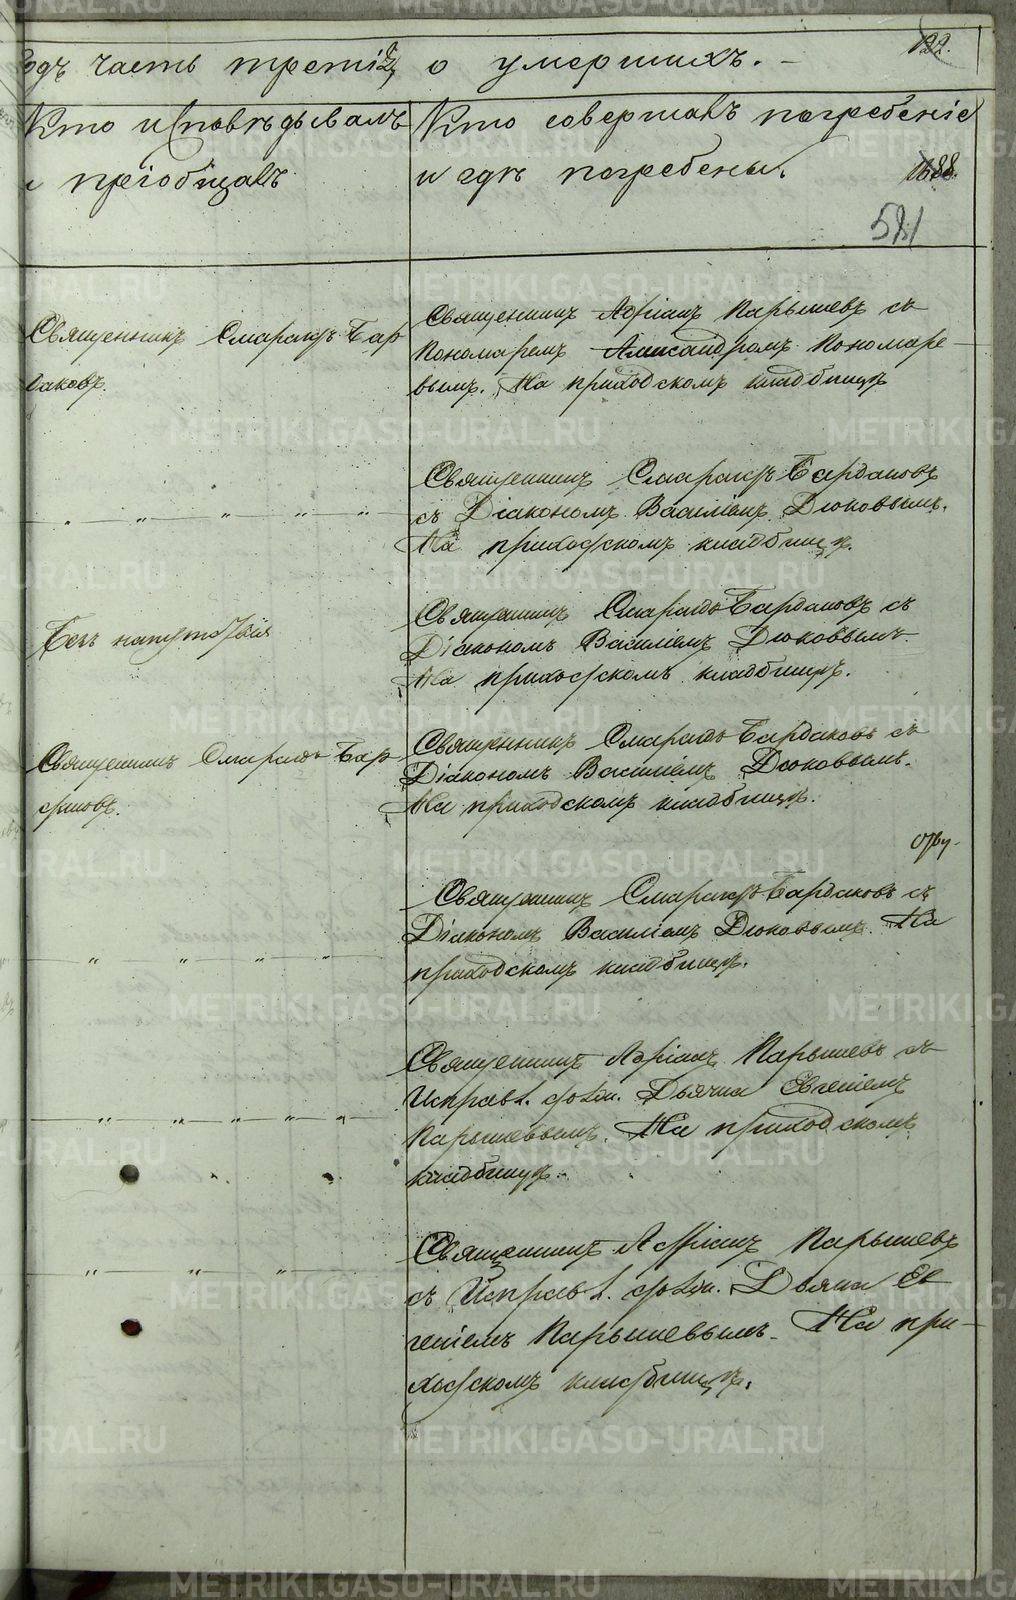 годъ часть третія о умершихъ. 122.
Кто исповѣдывалъ
и пріобщалъ
Кто совершалъ погребеніе
и гдѣ погребены.
1688.
581
Священникъ Смарагдъ Бар
даковъ.
Священникъ Адріанъ Парышевъ съ
Пономаремъ Александромъ Пономаре-
вымъ. На приходскомъ кладбищѣ
" " " " "
Священникъ Смарагдъ Бардаковъ
съ Діакономъ Василіемъ Дюковымъ.
На приходскомъ кладбищѣ.
Безъ напутствія
Священникъ Смарагдъ Бардаковъ съ
Діакономъ Василіемъ Дюковымъ-
На приходскомъ кладбищѣ.
Священникъ Смарагдъ Бар
даковъ.
Священникъ Смарагдъ Бардаковъ съ
Діакономъ Василіемъ Дюковымъ.
На приходскомъ кладбищѣ.
" " " "
Священникъ Смарагдъ Бардаковъ съ
Діакономъ Василіемъ Дюковымъ. На
приходскомъ кладбищѣ.
" " " " "
Священникъ Адріанъ Парышевъ съ
Исправл. долж. Дьячка Евгеніемъ
Парышевымъ. На приходскомъ
кладбищѣ.-
" " "
Священникъ Адріанъ Парышевъ
съ Исправл. долж. Дьячка Ев
геніемъ Парышевымъ. На при-
ходскомъ кладбищѣ.
METRIKI.GASO-URAL.RU